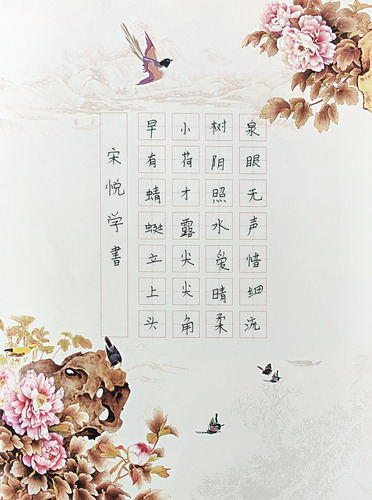 泉眼无声惜细流
树阴照水爱晴柔
小荷才露尖尖角
早有蜻蜓立上头
宋悦学書